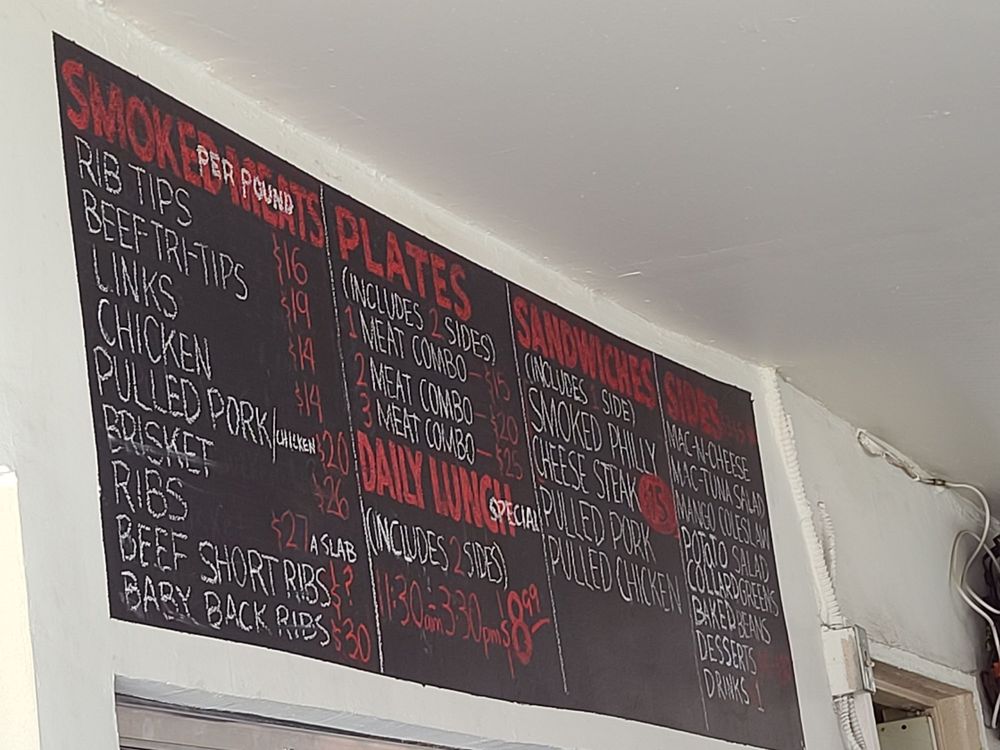 SMOKED MEATS
PER POUND
RIB TIPS $16
BEEF TRI-TIPS $19
LINKS $14
CHICKEN $14
PULLED PORK/CHICKEN $20
BRISKET $26
RIBS $27 A SLAB
BEEF SHORT RIBS $?
BABY BACK RIBS $30
PLATES
(INCLUDES 2 SIDES)
1 MEAT COMBO - $15
2 MEAT COMBO - $20
3 MEAT COMBO - $25
DAILY LUNCH
SPECIAL
(INCLUDES 2 SIDES)
11:30am-3:30pm $8.99
SANDWICHES
(INCLUDES 1 SIDE)
SMOKED PHILLY
CHEESE STEAK
PULLED PORK
PULLED CHICKEN
SIDES
MAC-N-CHEESE
MAC-TUNA SALAD
MANGO COLESLAW
POTATO SALAD
COLLARD GREENS
BAKED BEANS
DESSERTS
DRINKS 1